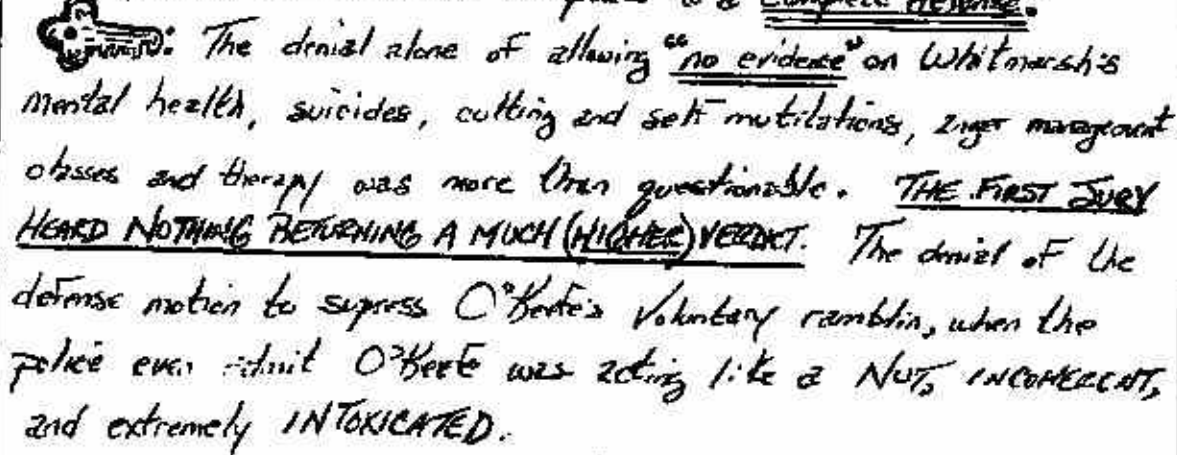 to a complete defense.
: The denial alone of allowing “no evidence” on Whitmarsh's
mental health, suicides, cutting and self mutilations, anger management
classes and therapy was more than questionable. THE FIRST JURY
HEARD NOTHING RETURNING A MUCH (HIGHER) VERDICT. The denial of the
defense motion to supress O'Keefe's voluntary ramblin, when the
police even admit O'Keefe was acting like a NUT, INCOHERENT,
and extremely INTOXICATED.